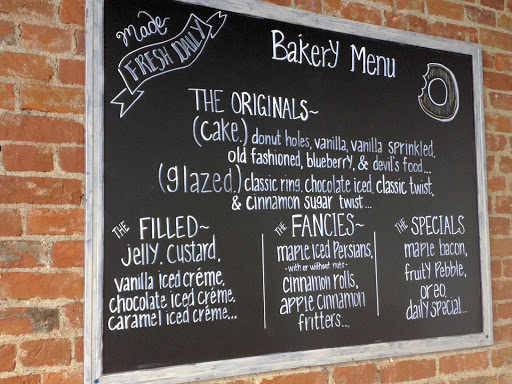 Made
FRESH DAILY
BAKERY MENU
THE ORIGINALS~
(cake.) donut holes, vanilla, vanilla sprinkled,
old fashioned, blueberry, & devil's food...
(glazed.) classic ring, chocolate iced, classic twist,
& cinnamon sugar twist...
THE FILLED~
jelly, custard,
vanilla iced créme,
chocolate iced créme,
caramel iced créme...
THE FANCIES~
maple iced Persians,
-with or without nuts-
cinnamon rolls,
apple cinnamon
fritters...
THE SPECIALS
maple bacon,
fruity pebble,
oreo,
daily special...